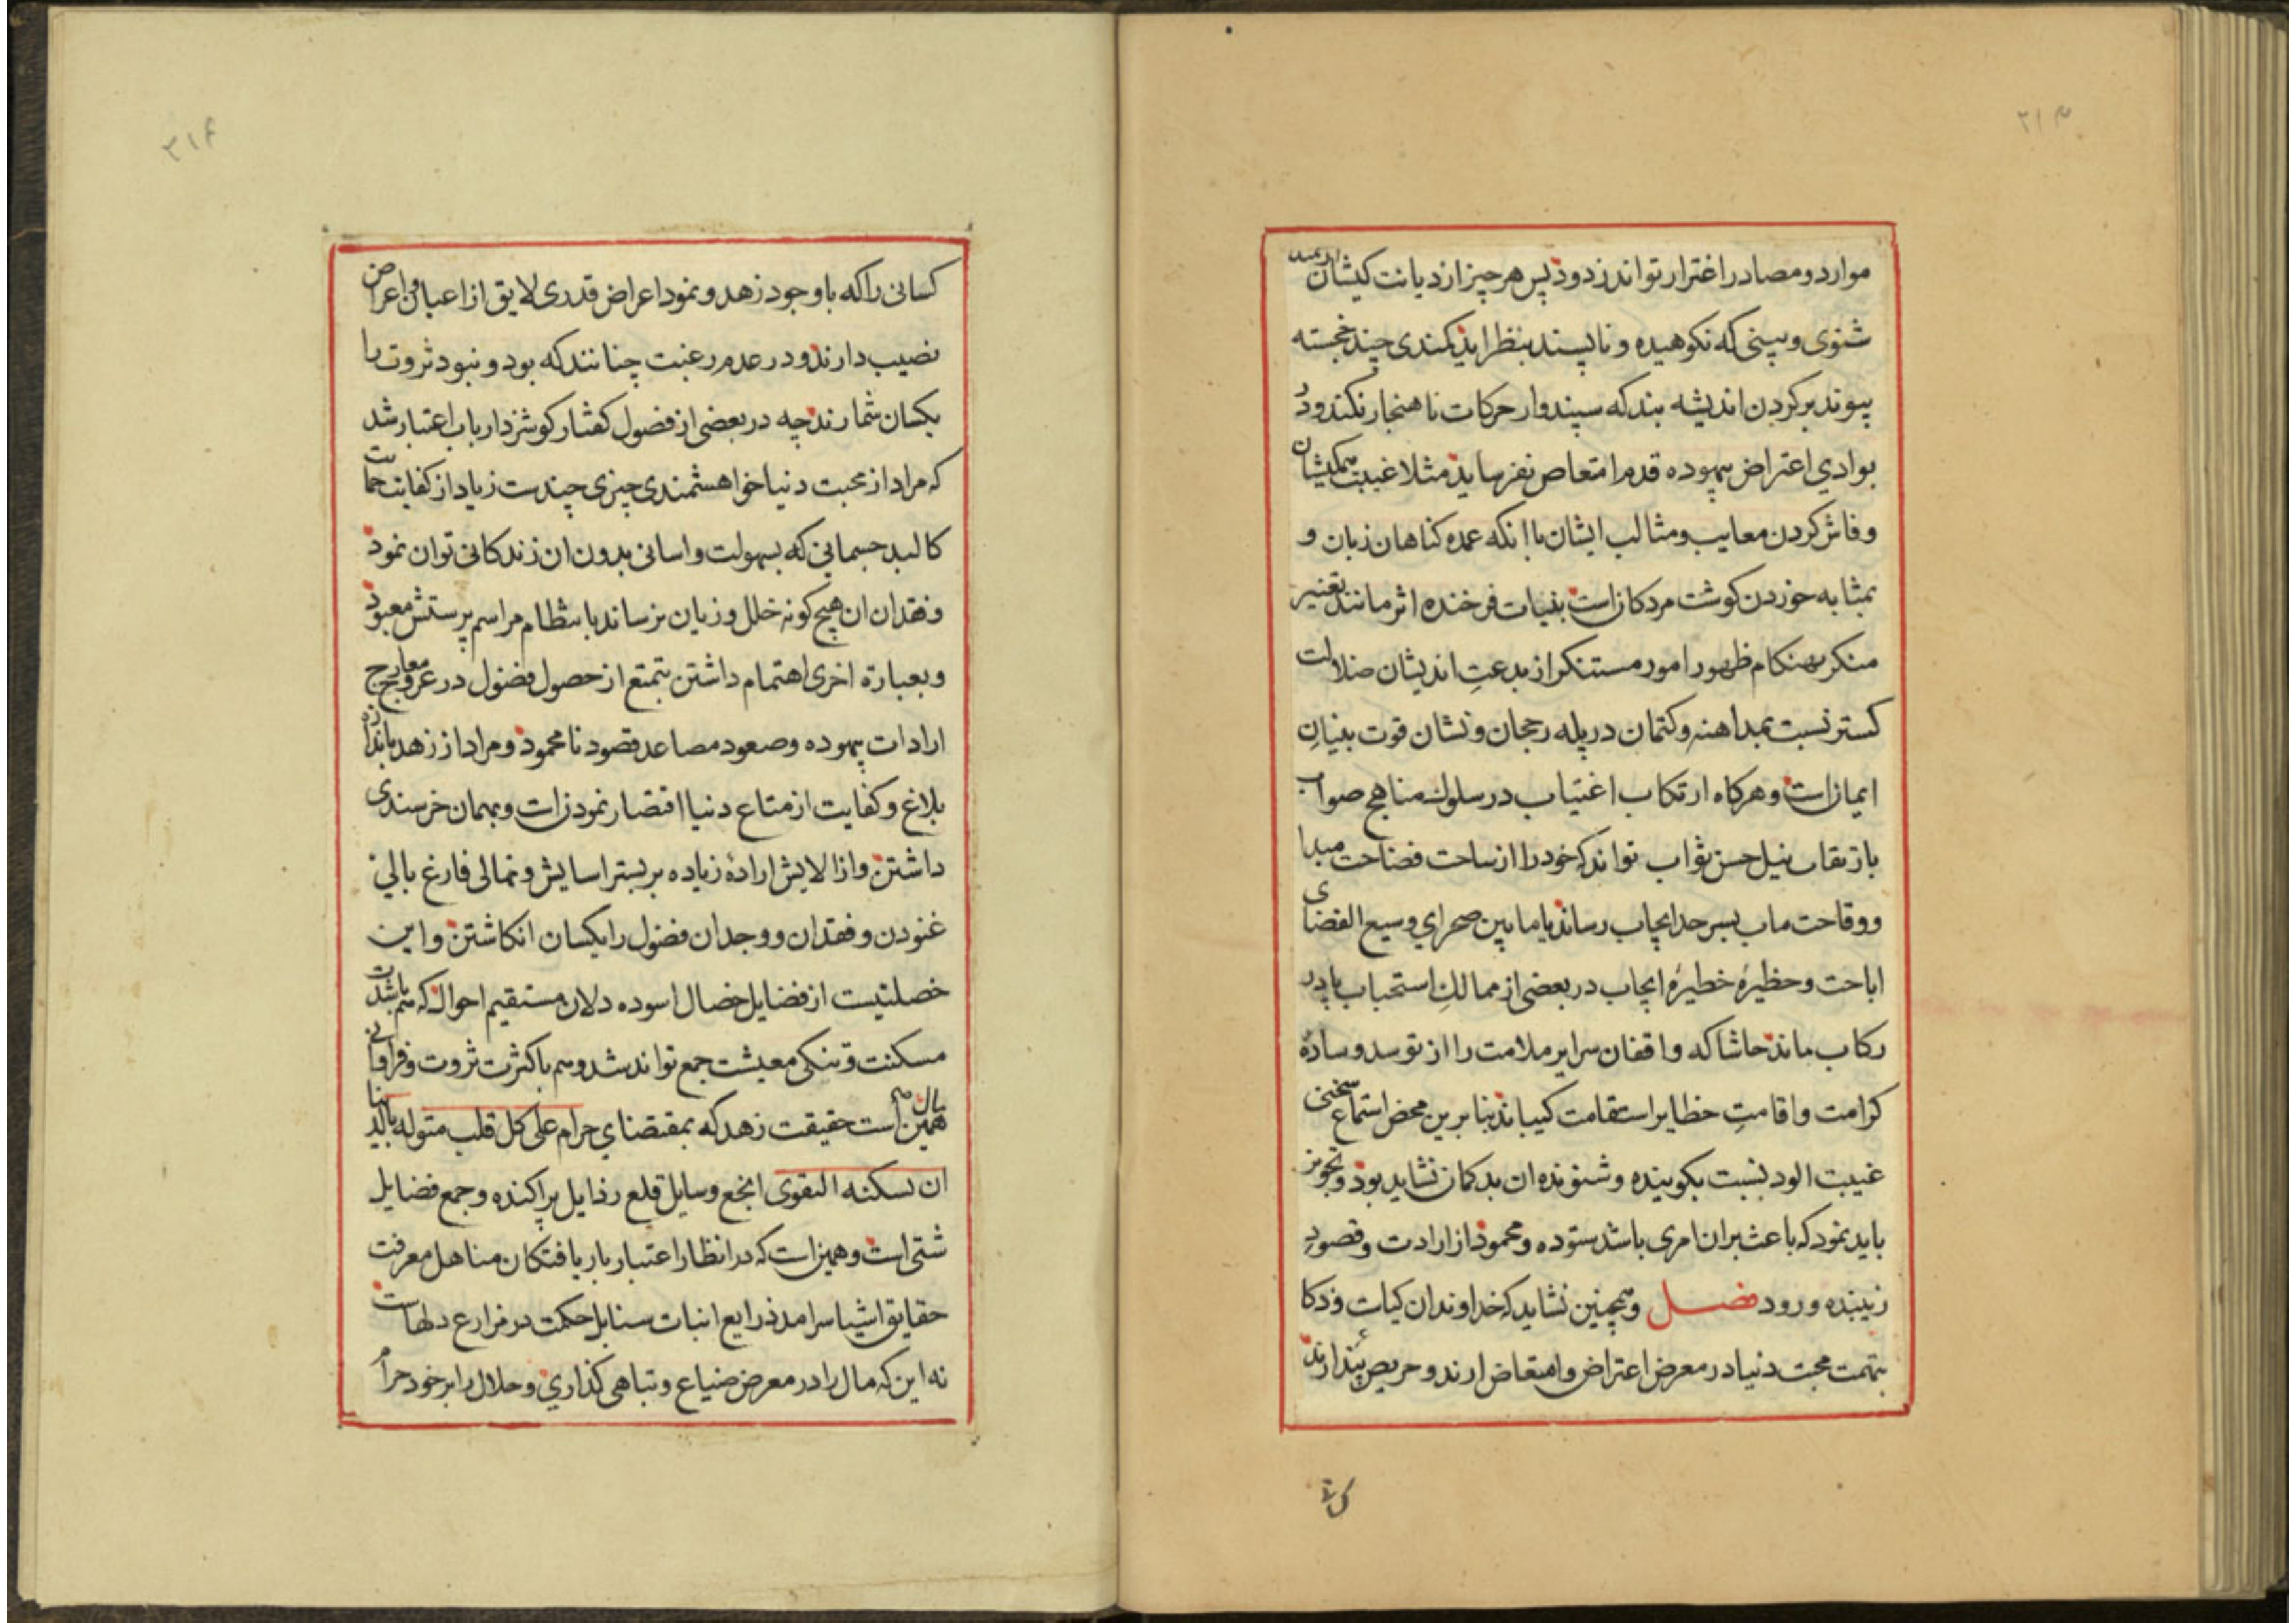 موارد و مصادر اغترار تواند زدود پس هر چیز از دیانت کیشان
شنوی و بینی که نکوهیده و ناپسند بنظر اید کمندی چند خجسته
پیوند بر گردن اندیشه بند که سپندوار حرکات ناهنجار نکند و در
بوادی اعتراض بیهوده قدم امتعاض نفرساید مثلا غیبت همکیشان
و فاش کردن معایب و مثالب ایشان با انکه عمده کناهان زبان و
بمثابه خوردن کوشت مردکان است بنیات فرخنده اثر مانند تغییر
منکر بهنکام ظهور امور مستنکر از بدعت اندیشان ضلالت
کستر نسبت بمداهنه و کتمان در پله رجحان و نشان قوت بنیان
ایمان است و هرکاه ارتکاب اغتیاب در سلوک مناهج صواب
بارتقاب نیل حسن ثواب تواند که خود را از ساحت فضاحت مبدا
و وقاحت ماب بسرحد ایجاب رساند یا مابین صحرای وسیع الفضای
اباحت و حظیرهٔ خطیرهٔ ایجاب در بعضی از ممالک استحباب پا در
رکاب ماند حاشا که واقفان سرایر ملامت را از توسد وسادهٔ
کرامت و اقامت حظایر استقامت کیباند بنا برین محض استماع سخنی
غیبت الود نسبت بکوینده و شنونده ان بدکمان نشاید بود و تجویز
باید نمود که باعث بران امری باشد ستوده و محمود از ارادت و قصود
زیبنده ورود فصل و همچنین نشاید که خداوندان کیاست و ذکا
بتهمت محبت دنیا در معرض اعتراض و امتعاض ارند و حریص پندارند
کسانی را که با وجود زهد و نمود اعراض قدری لایق از اعیان و اعراض
نصیب دارند و در عدم رغبت چنانند که بود و نبود ثروت را
یکسان شمارند چه در بعضی از فصول کفتار کوشزد ارباب اعتبار شد
که مراد از محبت دنیا خواهشمندی چیزی چندست زیاد از کفایت حمایت
کالبد جسمانی که بسهولت و اسانی بدون ان زندکانی توان نمود
و فقدان ان هیچ کونه خلل و زیان نرساند بانتظام مراسم پرستش معبود
و بعبارة اخری اهتمام داشتن بتمتع از حصول فضول در عروج معارج
ارادات بیهوده و صعود مصاعد قصود نامحمود و مراد از زهد باندازه
بلاغ و کفایت از متاع دنیا اقتصار نمودن است و بهمان خرسندی
داشتن و از الایش ارادهٔ زیاده بر بستر اسایش و نمالی فارغ بالی
غنودن و فقدان و وجدان فضول را یکسان انکاشتن و این
خصلتیست از فضایل خصال اسوده دلان مستقیم احوال که هم باشدت
مسکنت و تنکی معیشت جمع تواند شد و هم با کثرت ثروت و فراوانی
مال همین است حقیقت زهد که بمقتضای حرام علی کل قلب متوله بالدنیا
ان یسکنه التقوی انجع وسایل قلع رذایل پراکنده و جمع فضایل
شتی است و همین است که در انظار اعتبار باریافتکان مناهل معرفت
حقایق اشیا سرامد ذرایع انبات سنابل حکمت در مزارع دلهاست
نه این که مال را در معرض ضیاع و تباهی کذاری و حلال را بر خود حرام